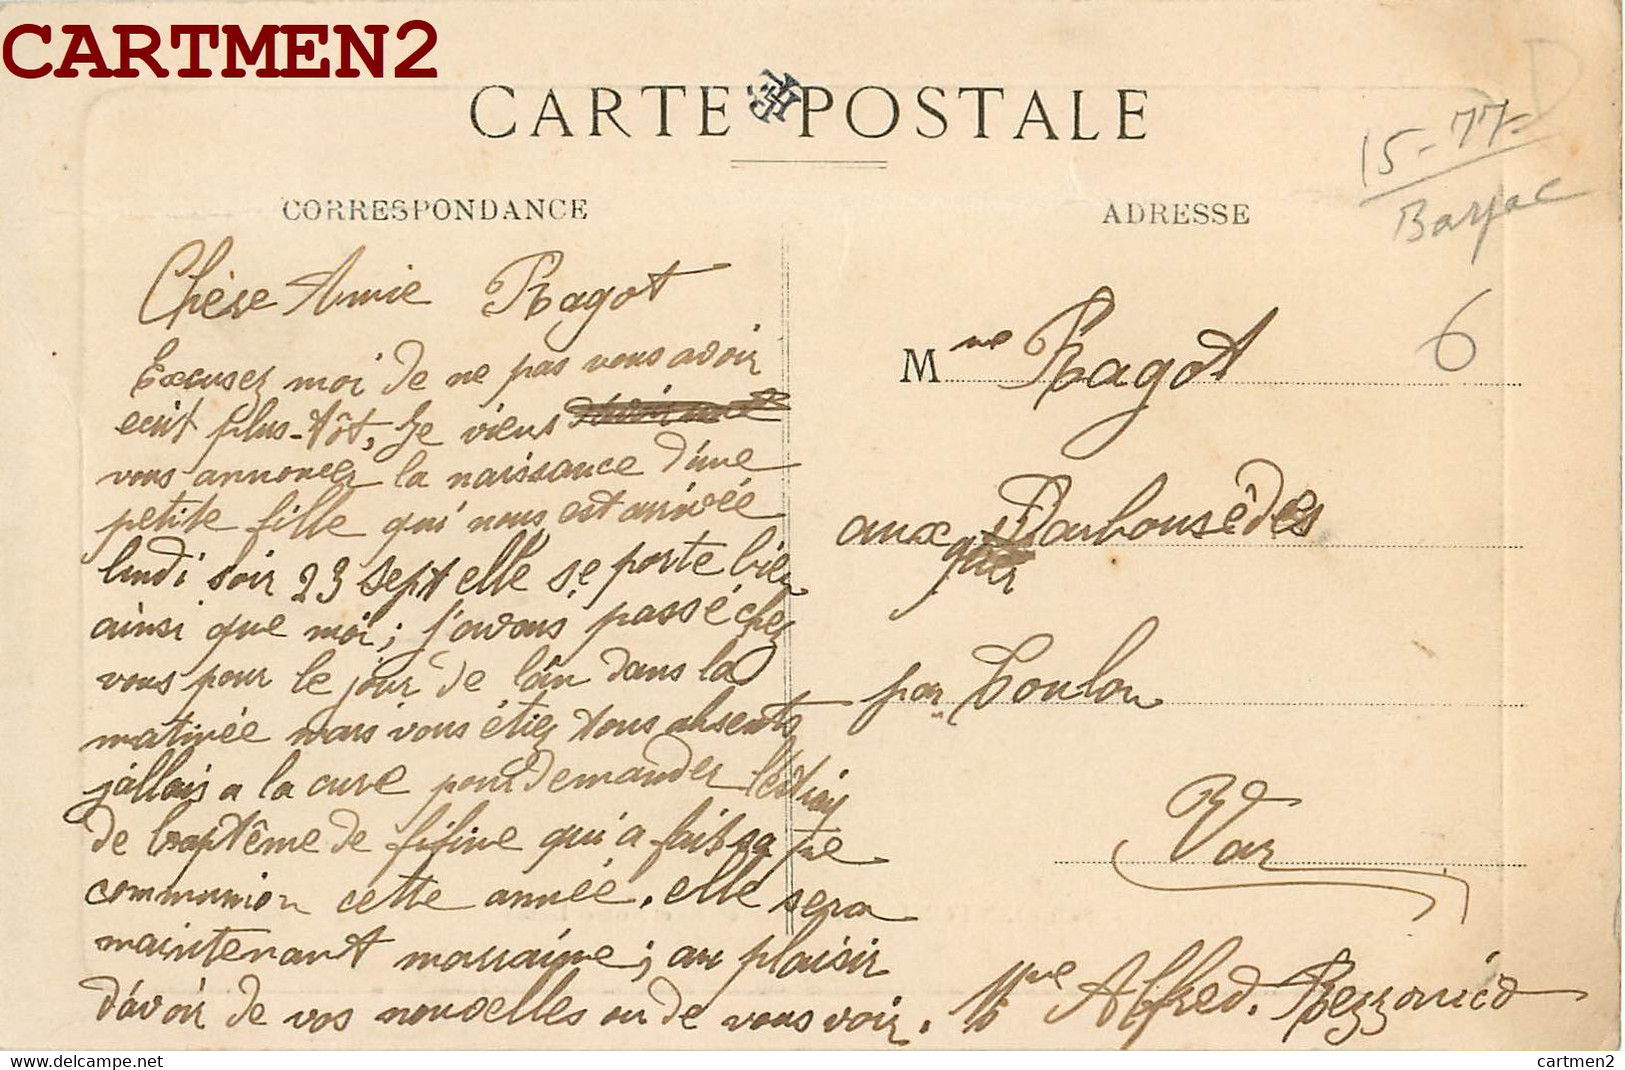 CARTMEN2
CARTE POSTALE
15-77-D
Barjac
CORRESPONDANCE
Chère Amie Ragot
Excusez moi de ne pas vous avoir
ecrit plus-tôt, Je viens
vous annoncer la naissance d'une
petite fille qui nous est arrivée
lundi soir 23 sept elle se porte bien
ainsi que moi; j'avais passé chez
vous pour le jour de l'an dans la
matinée mais vous étiez tous absents
j'allais a la cure pour demander l'extrait
de baptême de fifine qui a fait sa 1re
communion cette année. elle sera
maintenant marraine; au plaisir
d'avoir de vos nouvelles ou de vous voir. Mme Alfred. Rezzonico
ADRESSE
6
Mme Ragot
aux Darbousèdes
par Toulon
Var
cartmen2
delcampe.net